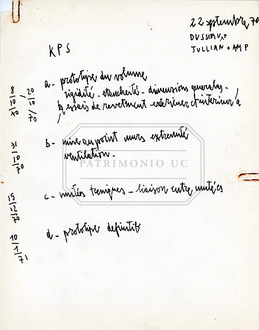 22 septembre 70
JULLIAN + AMP
KPS
a - prototype du volume
rigidité - étanchéité - dimension générales -
essais de revetment extérieur et intérieur à
8/10/70
20/10/70
b - mise au point murs extremités
ventilation -
31/10/70
PATRIMONIO UC
c - unités - liaison entre unités
15/12/70
d - prototype definitif
10/1/71